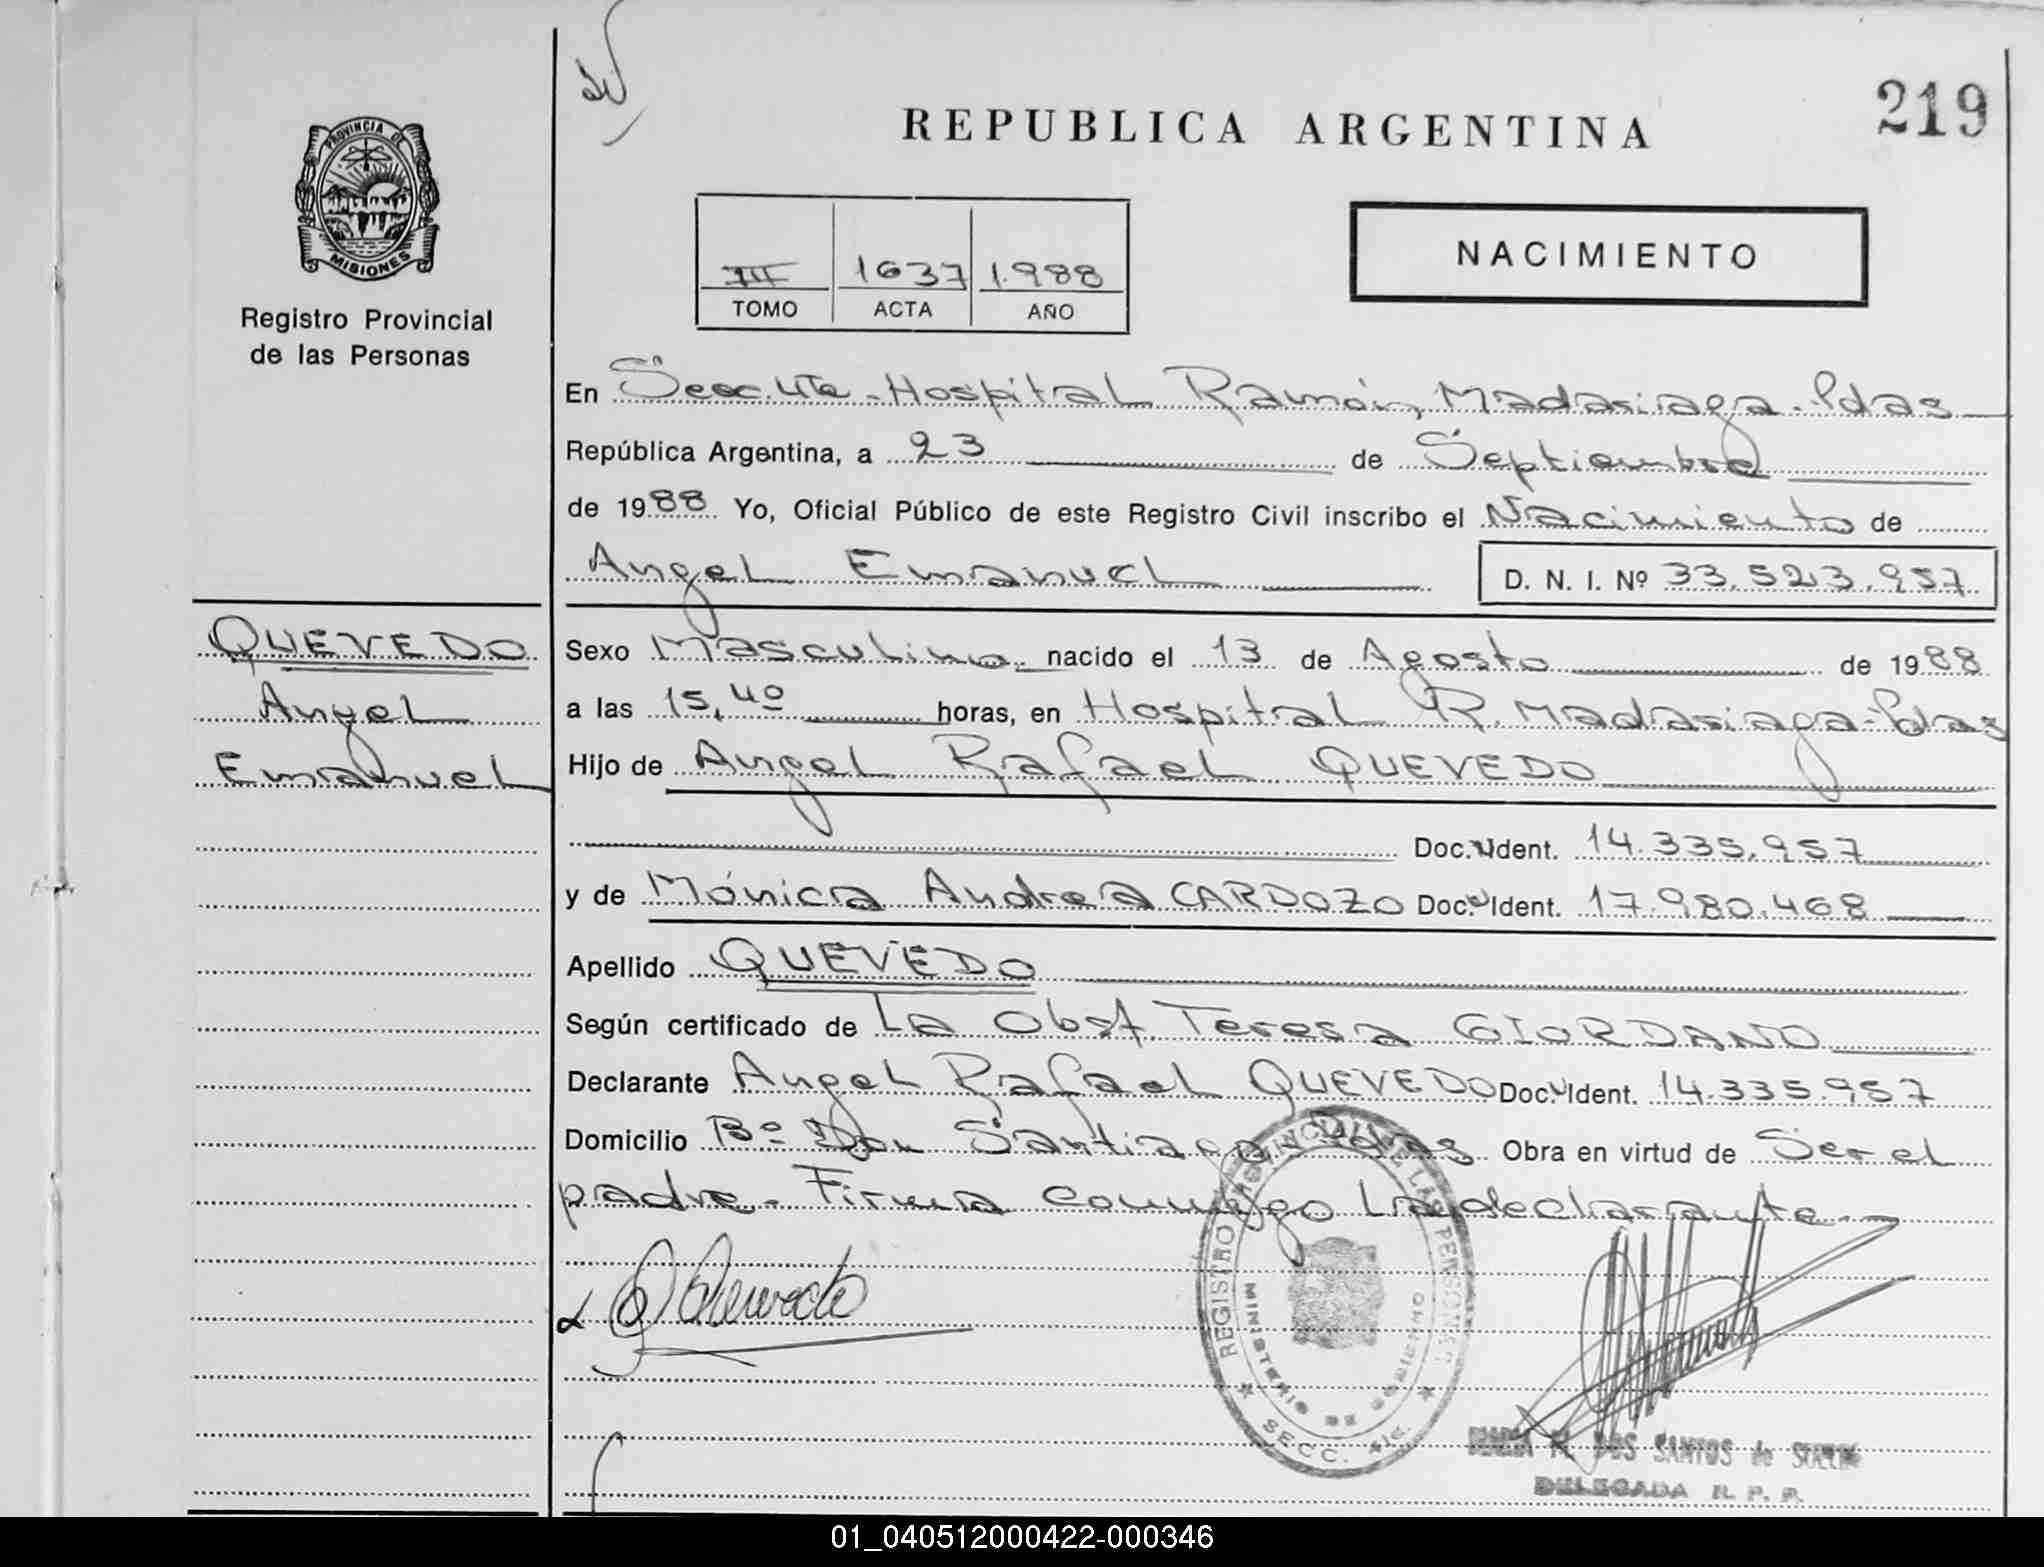 219
REPUBLICA ARGENTINA
PROVINCIA DE
MISIONES
Registro Provincial
de las Personas
III 1637 1.988
TOMO ACTA AÑO
NACIMIENTO
En Secc. 4ta - Hospital Ramón Madariaga - Pdas
República Argentina, a 23 de Septiembre
de 1988 Yo, Oficial Público de este Registro Civil inscribo el Nacimiento de
Angel Emanuel D. N. I. Nº 33.523.957
QUEVEDO
Angel
Emanuel
Sexo Masculino nacido el 13 de Agosto de 1988
a las 15,40 horas, en Hospital R. Madariaga - Pdas
Hijo de Angel Rafael QUEVEDO
Doc. Ident. 14.335.957
y de Mónica Andrea CARDOZO Doc. Ident. 17.980.468
Apellido QUEVEDO
Según certificado de La Obst. Teresa GIORDANO
Declarante Angel Rafael QUEVEDO Doc. Ident. 14.335.957
Domicilio Bº Don Santiago - Pdas Obra en virtud de Ser el
padre - Firma conmigo La declarante
Quevedo
REGISTRO PROVINCIAL DE LAS PERSONAS
MINISTERIO DE GOBIERNO
SECC. 4ta.
DOS SANTOS de
DELEGADA R. P. P.
01_040512000422-000346